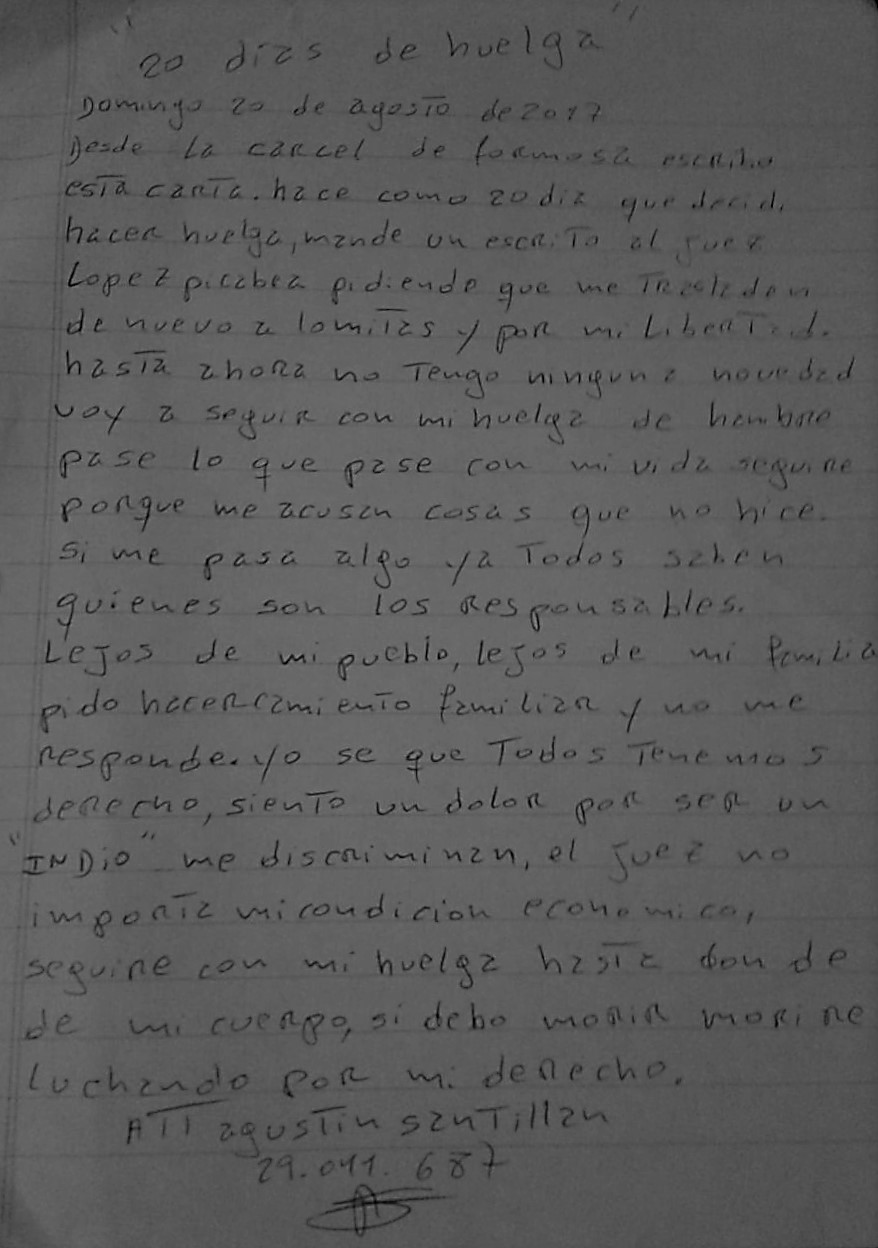 "20 dias de huelga"
Domingo 20 de agosto de 2017
Desde La carcel de formosa escribo
esta carta. hace como 20 dia que decidi
hacer huelga, mande un escrito al juez
Lopez picabea pidiendo que me Trasladen
de nuevo a lomitas y por mi Libertad.
hasta ahora no Tengo ninguna novedad
voy a seguir con mi huelga de hambre
pase lo que pase con mi vida seguire
porque me acusan cosas que no hice.
si me pasa algo ya Todos saben
quienes son los Responsables.
Lejos de mi pueblo, lejos de mi familia
pido hacercamiento familiar y no me
responde. yo se que Todos Tenemos
derecho, siento un dolor por ser un
"INDio" me discriminan, el juez no
importa mi condicion economica,
seguire con mi huelga hasta donde
de mi cuerpo, si debo morir morire
luchando por mi derecho.
ATT agustin santillan
29.041.687